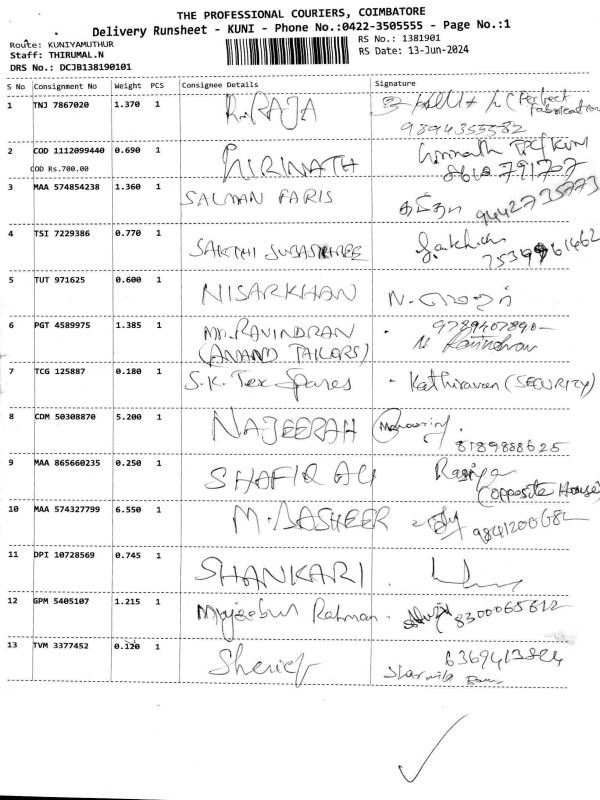 THE PROFESSIONAL COURIERS, COIMBATORE
Delivery Runsheet - KUNI - Phone No.:0422-3505555 - Page No.:1
Route: KUNIYAMUTHUR
Staff: THIRUMAL.N
DRS No.: DCJB138190101
RS No.: 1381901
RS Date: 13-Jun-2024
S No Consignment No Weight PCS Consignee Details Signature
1 TNJ 7867020 1.370 1 R.RAJA (Perfect
Fabrication
9894355582
2 COD 1112099440 0.690 1 HIRINATH
COD Rs.700.00
3 MAA 574854238 1.360 1 SALMAN FARIS 9442735773
4 TSI 7229386 0.770 1 SAKTHI SUBASHREE
5 TUT 971625 0.600 1 NISARKHAN
6 PGT 4589975 1.385 1 MR.RAVINDRAN 9789407890
(ANAND TAILORS) N Ravindran
7 TCG 125887 0.180 1 S.K. Tex Spares - Kathiravan (SECURITY)
8 CDM 50308870 5.200 1 NAJEERAH
8189888625
9 MAA 865660235 0.250 1 SHAFIQ ALI Raziya
(opposite House)
10 MAA 574327799 6.550 1 M.BASHEER
11 DPI 10728569 0.745 1 SHANKARI.
12 GPM 5405107 1.215 1 Mujeebur Rahman. 8300065612
13 TVM 3377452 0.120 1 Sherief 6369413824
Sharmila